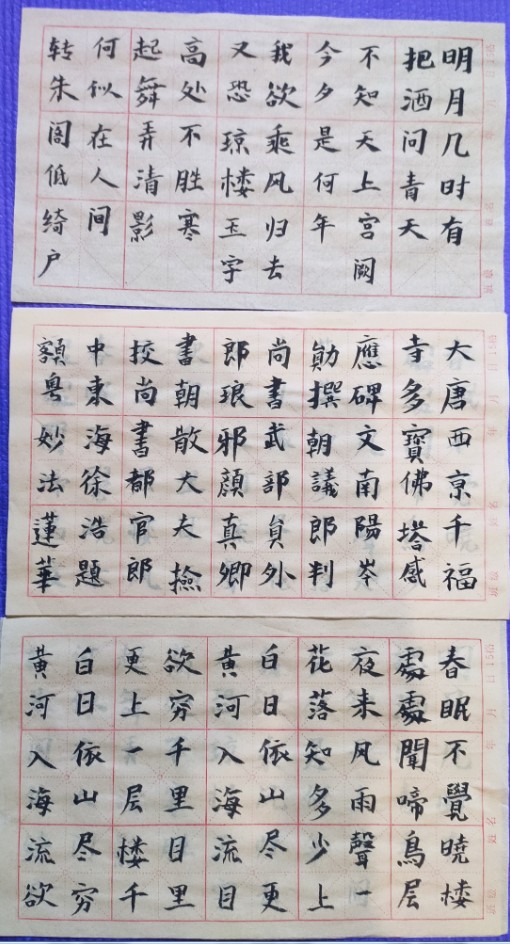 明月几时有
把酒问青天
不知天上宫阙
今夕是何年
我欲乘风归去
又恐琼楼玉宇
高处不胜寒
起舞弄清影
何似在人间
转朱阁低绮户
大唐西京千福
寺多寶佛塔感
應碑文南陽岑
勛撰朝議郎判
尚書武部員外
郎琅邪顏真卿
書朝散大夫撿
挍尚書都官郎
中東海徐浩題
額粤妙法蓮華
春眠不覺曉楼
處處聞啼鳥层
夜来风雨聲一
花落知多少上
白日依山尽更
黄河入海流目
欲穷千里目里
更上一层楼千
白日依山尽穷
黄河入海流欲